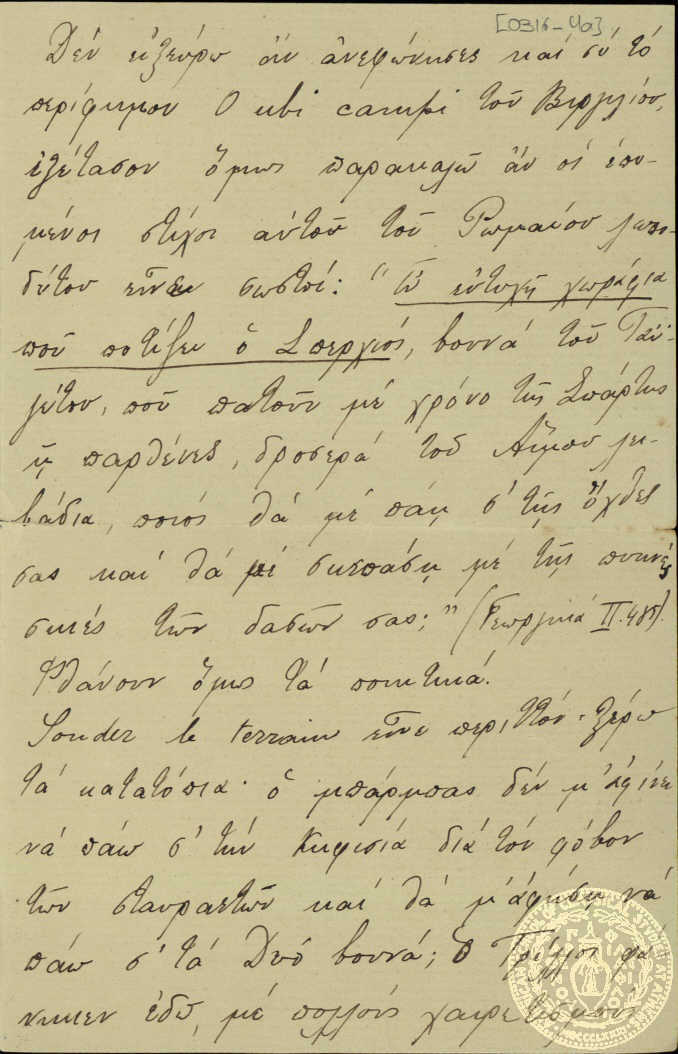 [0316-40]
Δέν ἠξεύρω ἄν ἀνεφώνησες καί σύ τό
περίφημον O ubi campi τοῦ Βιργιλίου,
ἐξέτασον ὅμως παρακαλῶ ἄν οἱ ἑπό-
μενοι στίχοι αὐτοῦ τοῦ Ρωμαίου λωπο-
δύτου εἶνε σωστοί: "Ὦ εὐτυχῆ χωράφια
ποῦ ποτίζει ὁ Σπερχιός, βουνά τοῦ Ταϋ-
γέτου, ποῦ πατοῦν μέ χρόνο τῆς Σπάρτης
ᾑ παρθένες, δροσερά τοῦ Αἵμου λει-
βάδια, ποιός θά μέ πάῃ σ' τῆς ὄχθες
σας καί θά μέ σκεπάσῃ μέ τῆς πυκνές
σκιές τῶν δασῶν σας;" (Γεωργικά II. 485).
Φθάνουν ὅμως τά ποιητικά.
Sonder le terrain εἶνε περιττόν· ξέρω
τά κατατόπια· ὁ μπάρμπας δέν μ' ἀφίνει
νά πάω σ' τήν Κηφισιά διά τόν φόβον
τῶν σταυραετῶν καί θά μ' ἀφήσῃ νά
πάω σ' τά Δυό βουνά; Ὁ
ἐδῶ, μέ πολλούς χαιρετισμούς